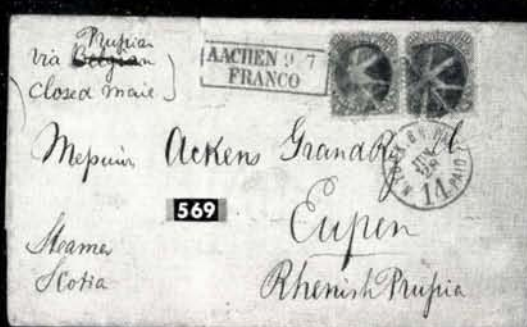 Prussian
via Belgian
closed mail
AACHEN 9 7
FRANCO
Messieurs Ackens Grand Ry &
N. YORK BR. PKT.
JUN
28
14
PAID
569
Eupen
Steamer
Scotia
Rhenish Prussia